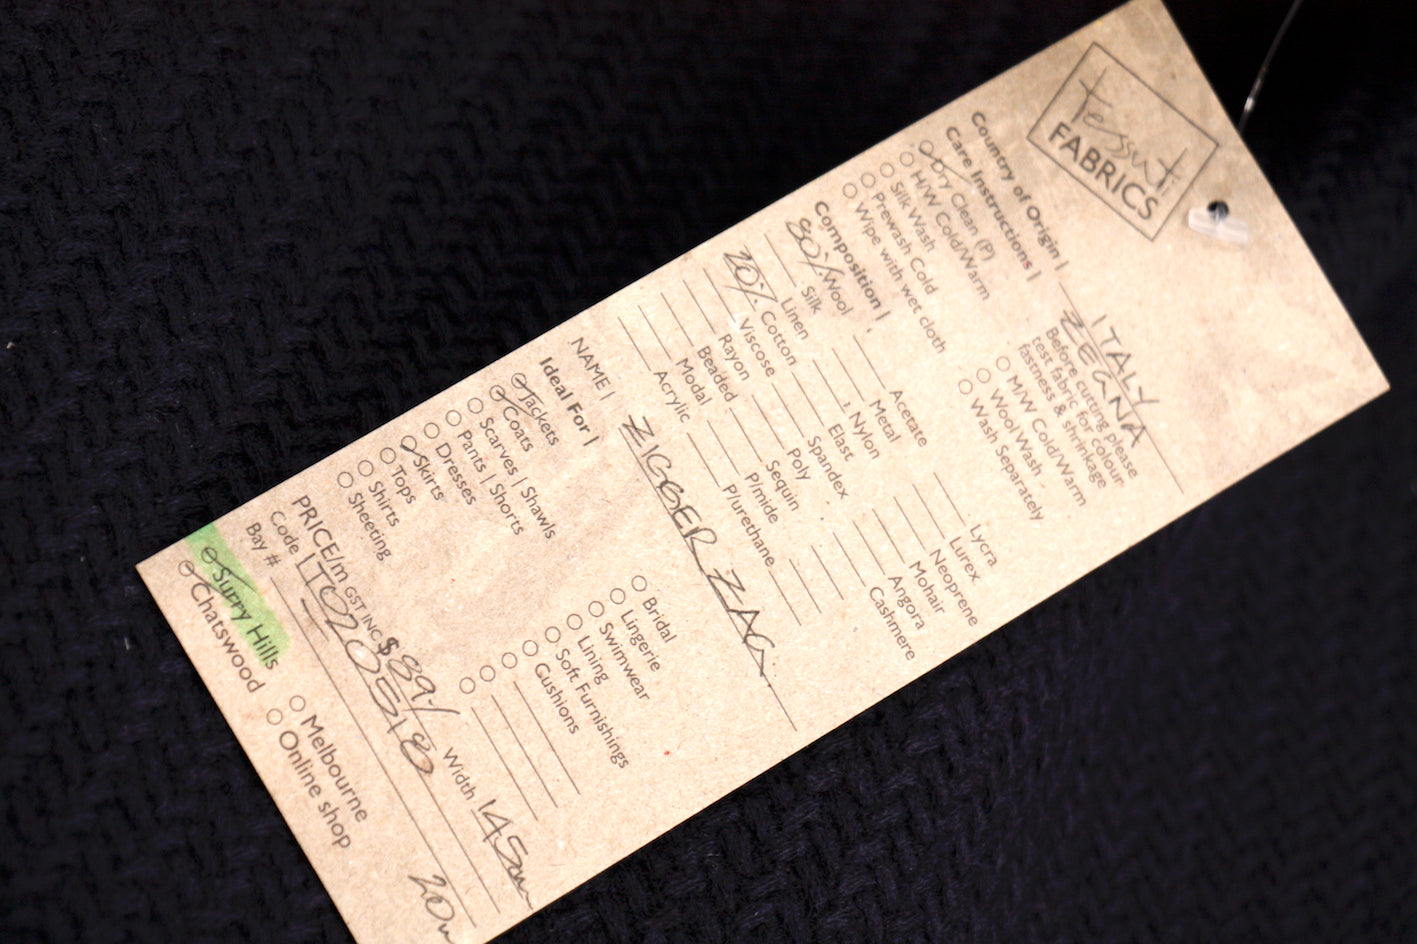 Tessuti
FABRICS
Country of Origin | ITALY
ZEGNA
Care Instructions |
Before cutting please
test fabric for colour
fastness & shrinkage
Dry Clean (P)
H/W Cold/Warm
Silk Wash
Prewash Cold
Wipe with wet cloth
M/W Cold/Warm
Wool Wash
Wash Separately
Composition |
80% Wool
Silk
Linen
20% Cotton
Viscose
Rayon
Beaded
Modal
Acrylic
Acetate
Metal
Nylon
Elast
Spandex
Poly
Sequin
P/mide
P/urethane
Lycra
Lurex
Neoprene
Mohair
Angora
Cashmere
NAME | ZIGGER ZAG
Ideal For |
Jackets
Coats
Scarves | Shawls
Pants | Shorts
Dresses
Skirts
Tops
Shirts
Sheeting
Bridal
Lingerie
Swimwear
Lining
Soft Furnishings
Cushions
PRICE/m GST INC $ 89/ Width 145cm
Code ITO20518
Bay # 20m
Surry Hills
Chatswood
Melbourne
Online shop